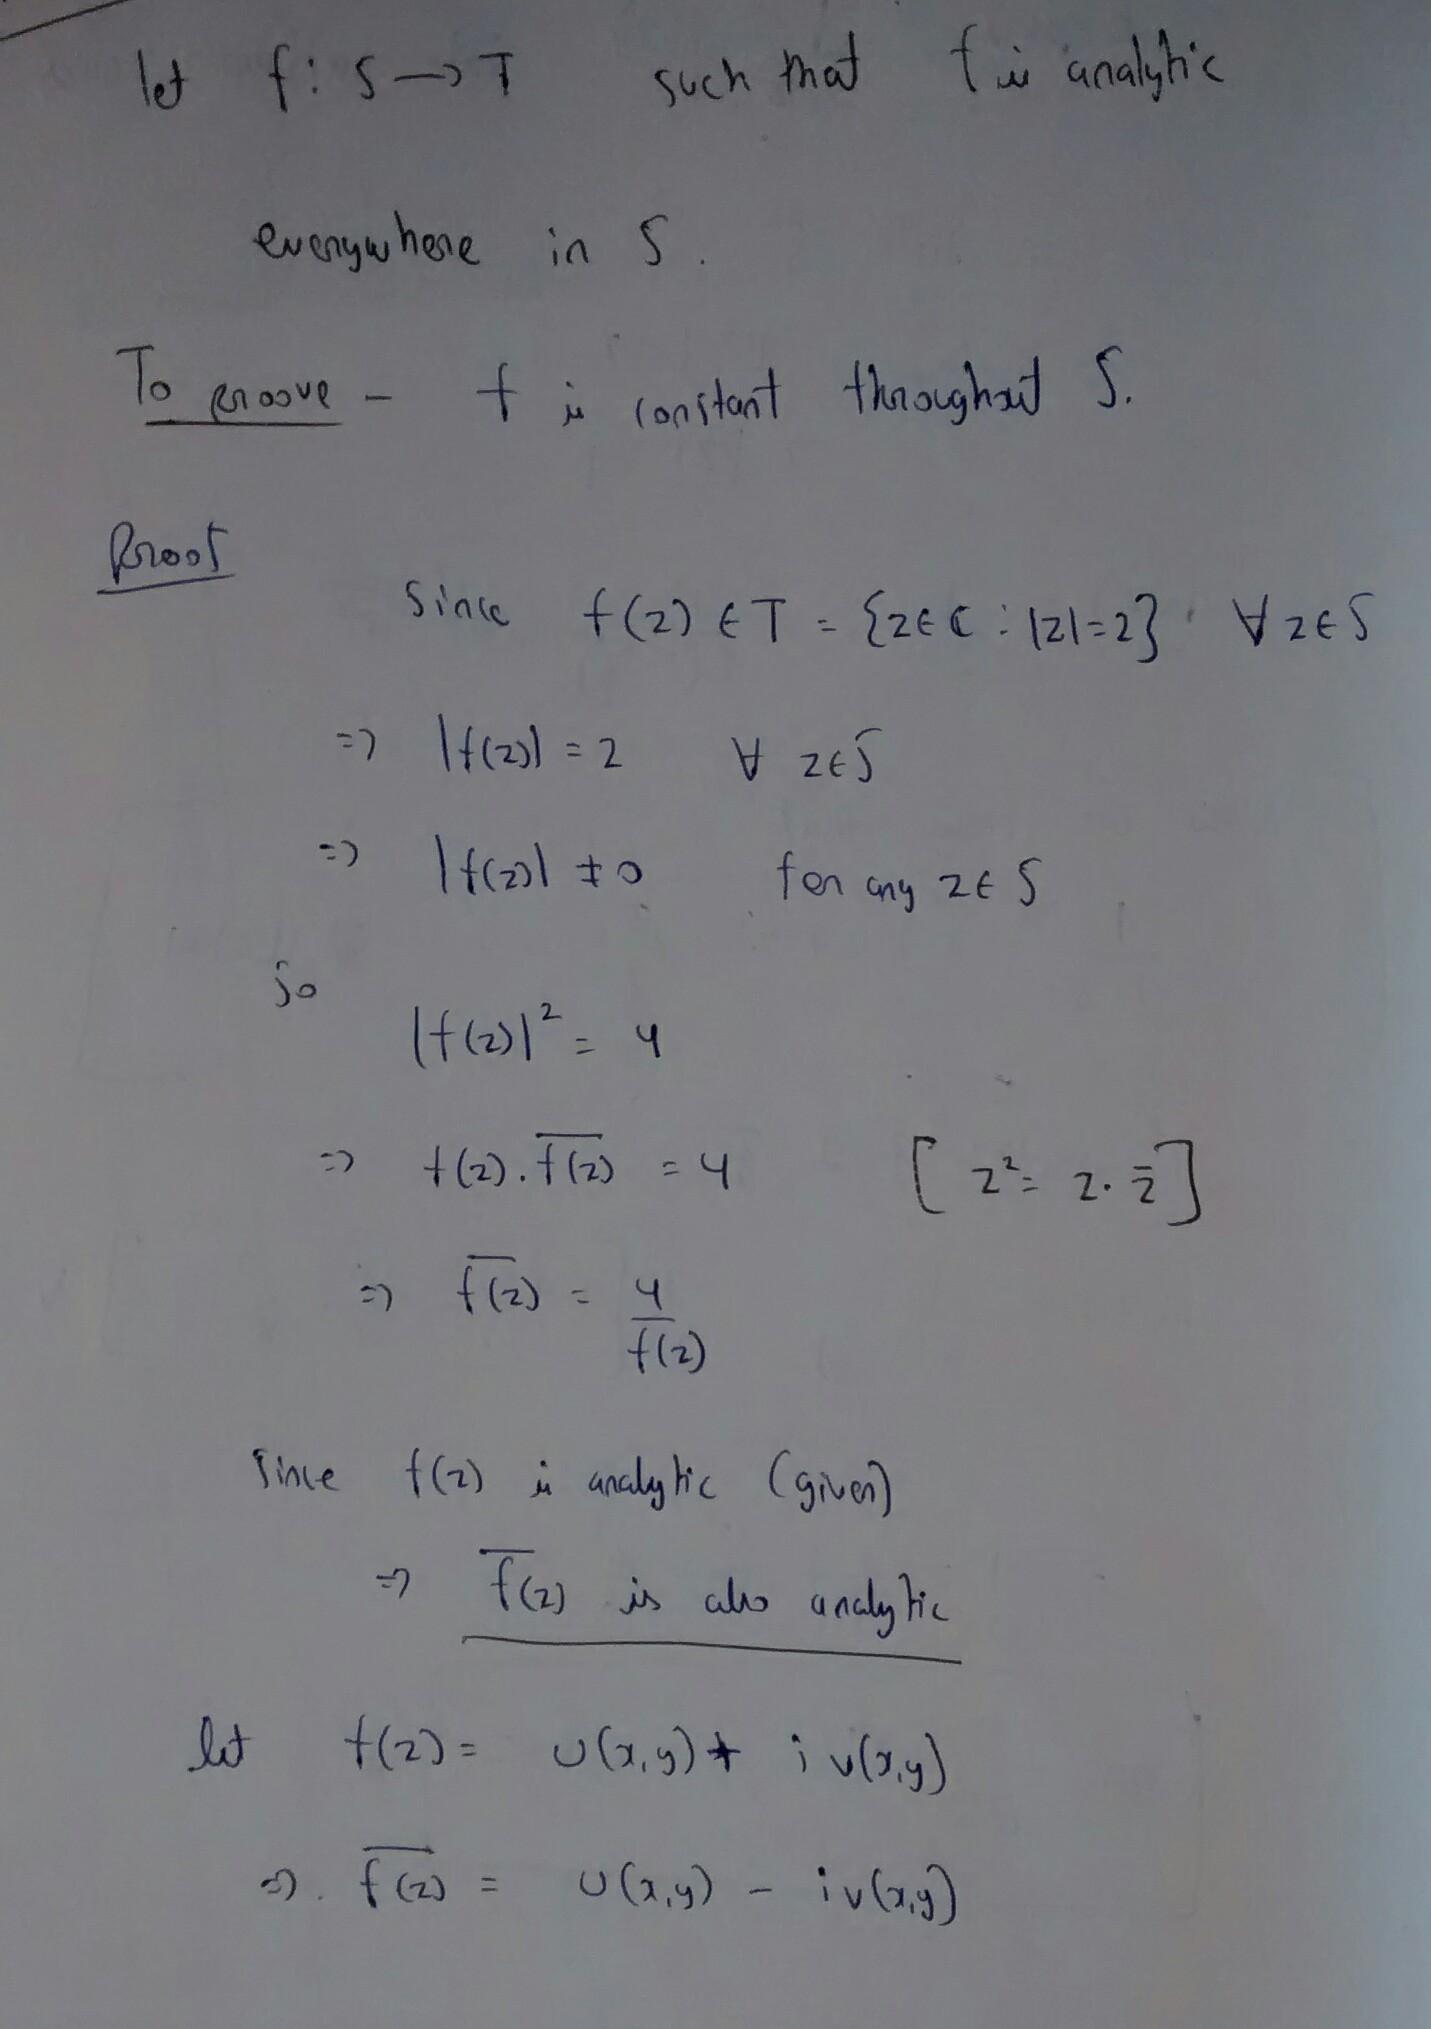 let f: S → T such that f is analytic
everywhere in S.
To proove - f is constant throughout S.
Proof
Since f(z) ∈ T = {z ∈ ℂ : |z|=2} ∀ z ∈ S
=> |f(z)| = 2 ∀ z ∈ S
=> |f(z)| ≠ 0 for any z ∈ S
So
|f(z)|² = 4
=> f(z). f̅(̅z̅)̅ = 4 [z² = z. z̅]
=> f̅(̅z̅)̅ = 4/f(z)
Since f(z) is analytic (given)
=> f̅(̅z̅)̅ is also analytic
let f(z) = u(x,y) + i v(x,y)
=>. f̅(̅z̅)̅ = u(x,y) - i v(x,y)